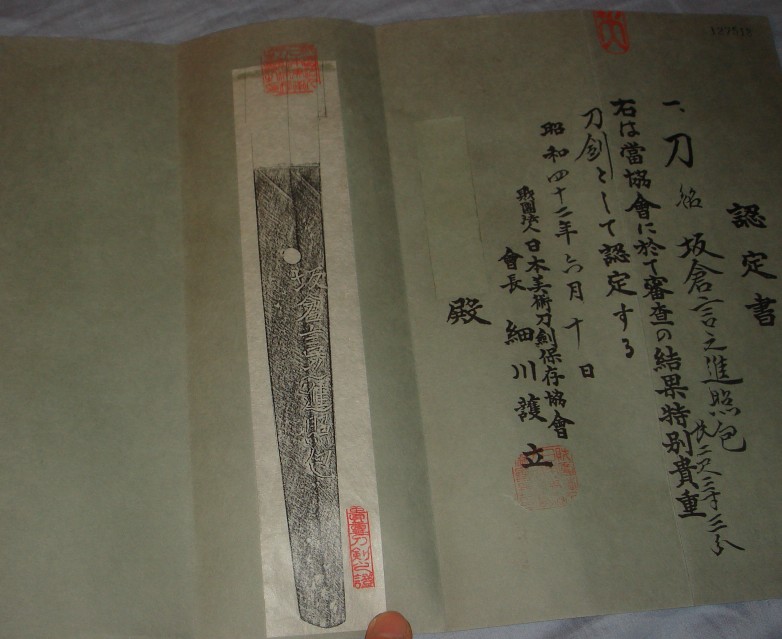 認定書
一、刀 銘 坂倉言之進照包
長二尺三寸三分
右は當協會に於て審査の結果特別貴重
刀剣として認定する
昭和四十二年六月十日
財團法人日本美術刀剣保存協會
會長 細川護立
殿
坂倉言之進照包